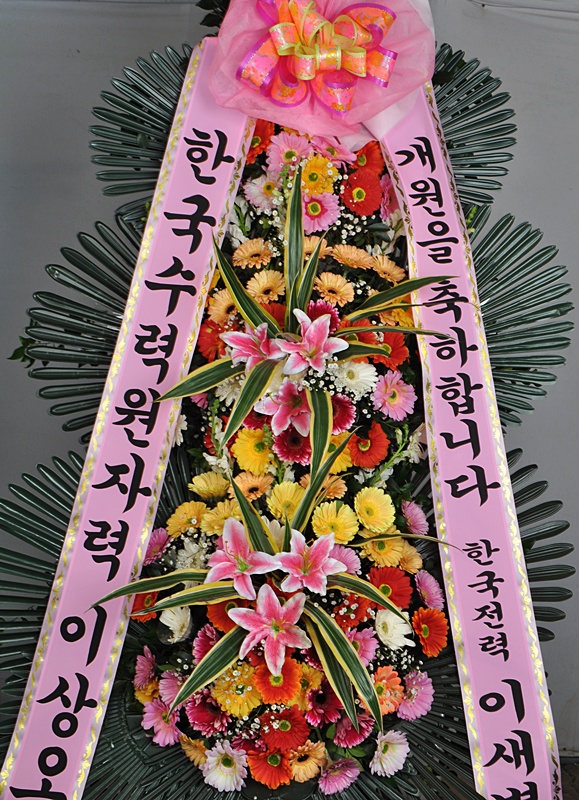 한국수력원자력 이상
개원을 축하합니다 한국전력 이새